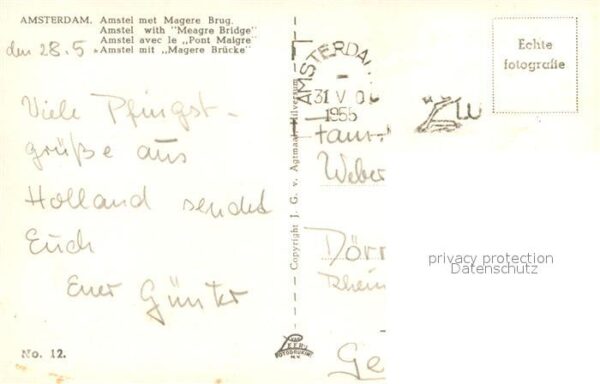 AMSTERDAM. Amstel met Magere Brug.
Amstel with "Meagre Bridge"
Amstel avec le „Pont Maigre"
Amstel mit „Magere Brücke"
den 28.5.
Viele Pfingst-
grüße aus
Holland sendet
Euch
Euer Günter
No. 12.
Copyright J. G. v. Agtmaal, Hilversum
AMSTERDAM
31 V
1955
Echte
fotografie
Fam.
Weber
Dörr
Rhein
Ge
privacy protection
Datenschutz